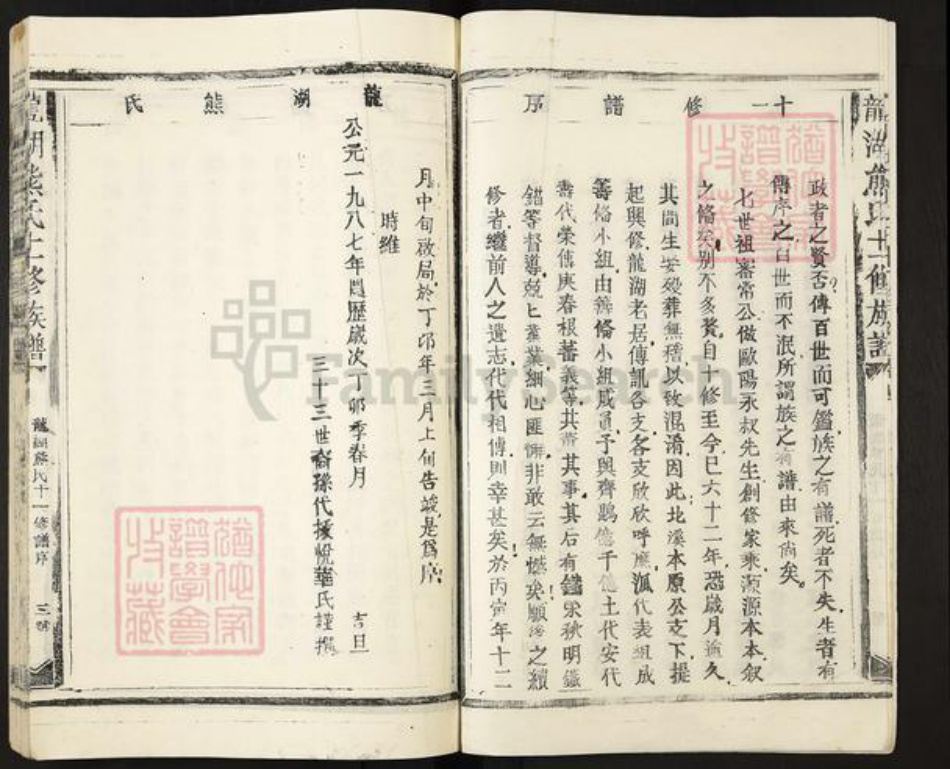 龍湖熊氏十一修族譜
十一修譜序
政者之賢否傳百世而可鑑族之有譜死者不失生者有
傳序之百世而不泯所謂族之有譜由來尚矣
七世祖審常公倣歐陽永叔先生創修家乘溯源本本叙
之脩矣别不多贅自十修至今已六十二年恐歲月逾久
其間生娶殁葬無稽以致混淆因此北溪本原公支下提
起興修龍湖老居傳訊各支各支欣欣呼應派代表組成
籌脩小組由籌脩小組成員予與齊鵬億千億土代安代
壽代榮傳庚春根蕃義等共靑其事其后有鐵泉秧明鐵
錨等督導兢兢業業細心匪懈非敢云無憾矣願後之續
修者繼前人之遺志代代相傳則幸甚矣於丙寅年十二
月中旬啟局於丁卯年三月上旬告竣是爲序
時維
公元一九八七年農歷歲次丁卯季春月 吉旦
三十三世裔孫代援悅華氏謹撰
龍湖熊氏
龍湖熊氏十一修族譜
龍湖熊氏十一修譜序
三
猶他家譜學會收藏
猶他家譜學會收藏
FamilySearch